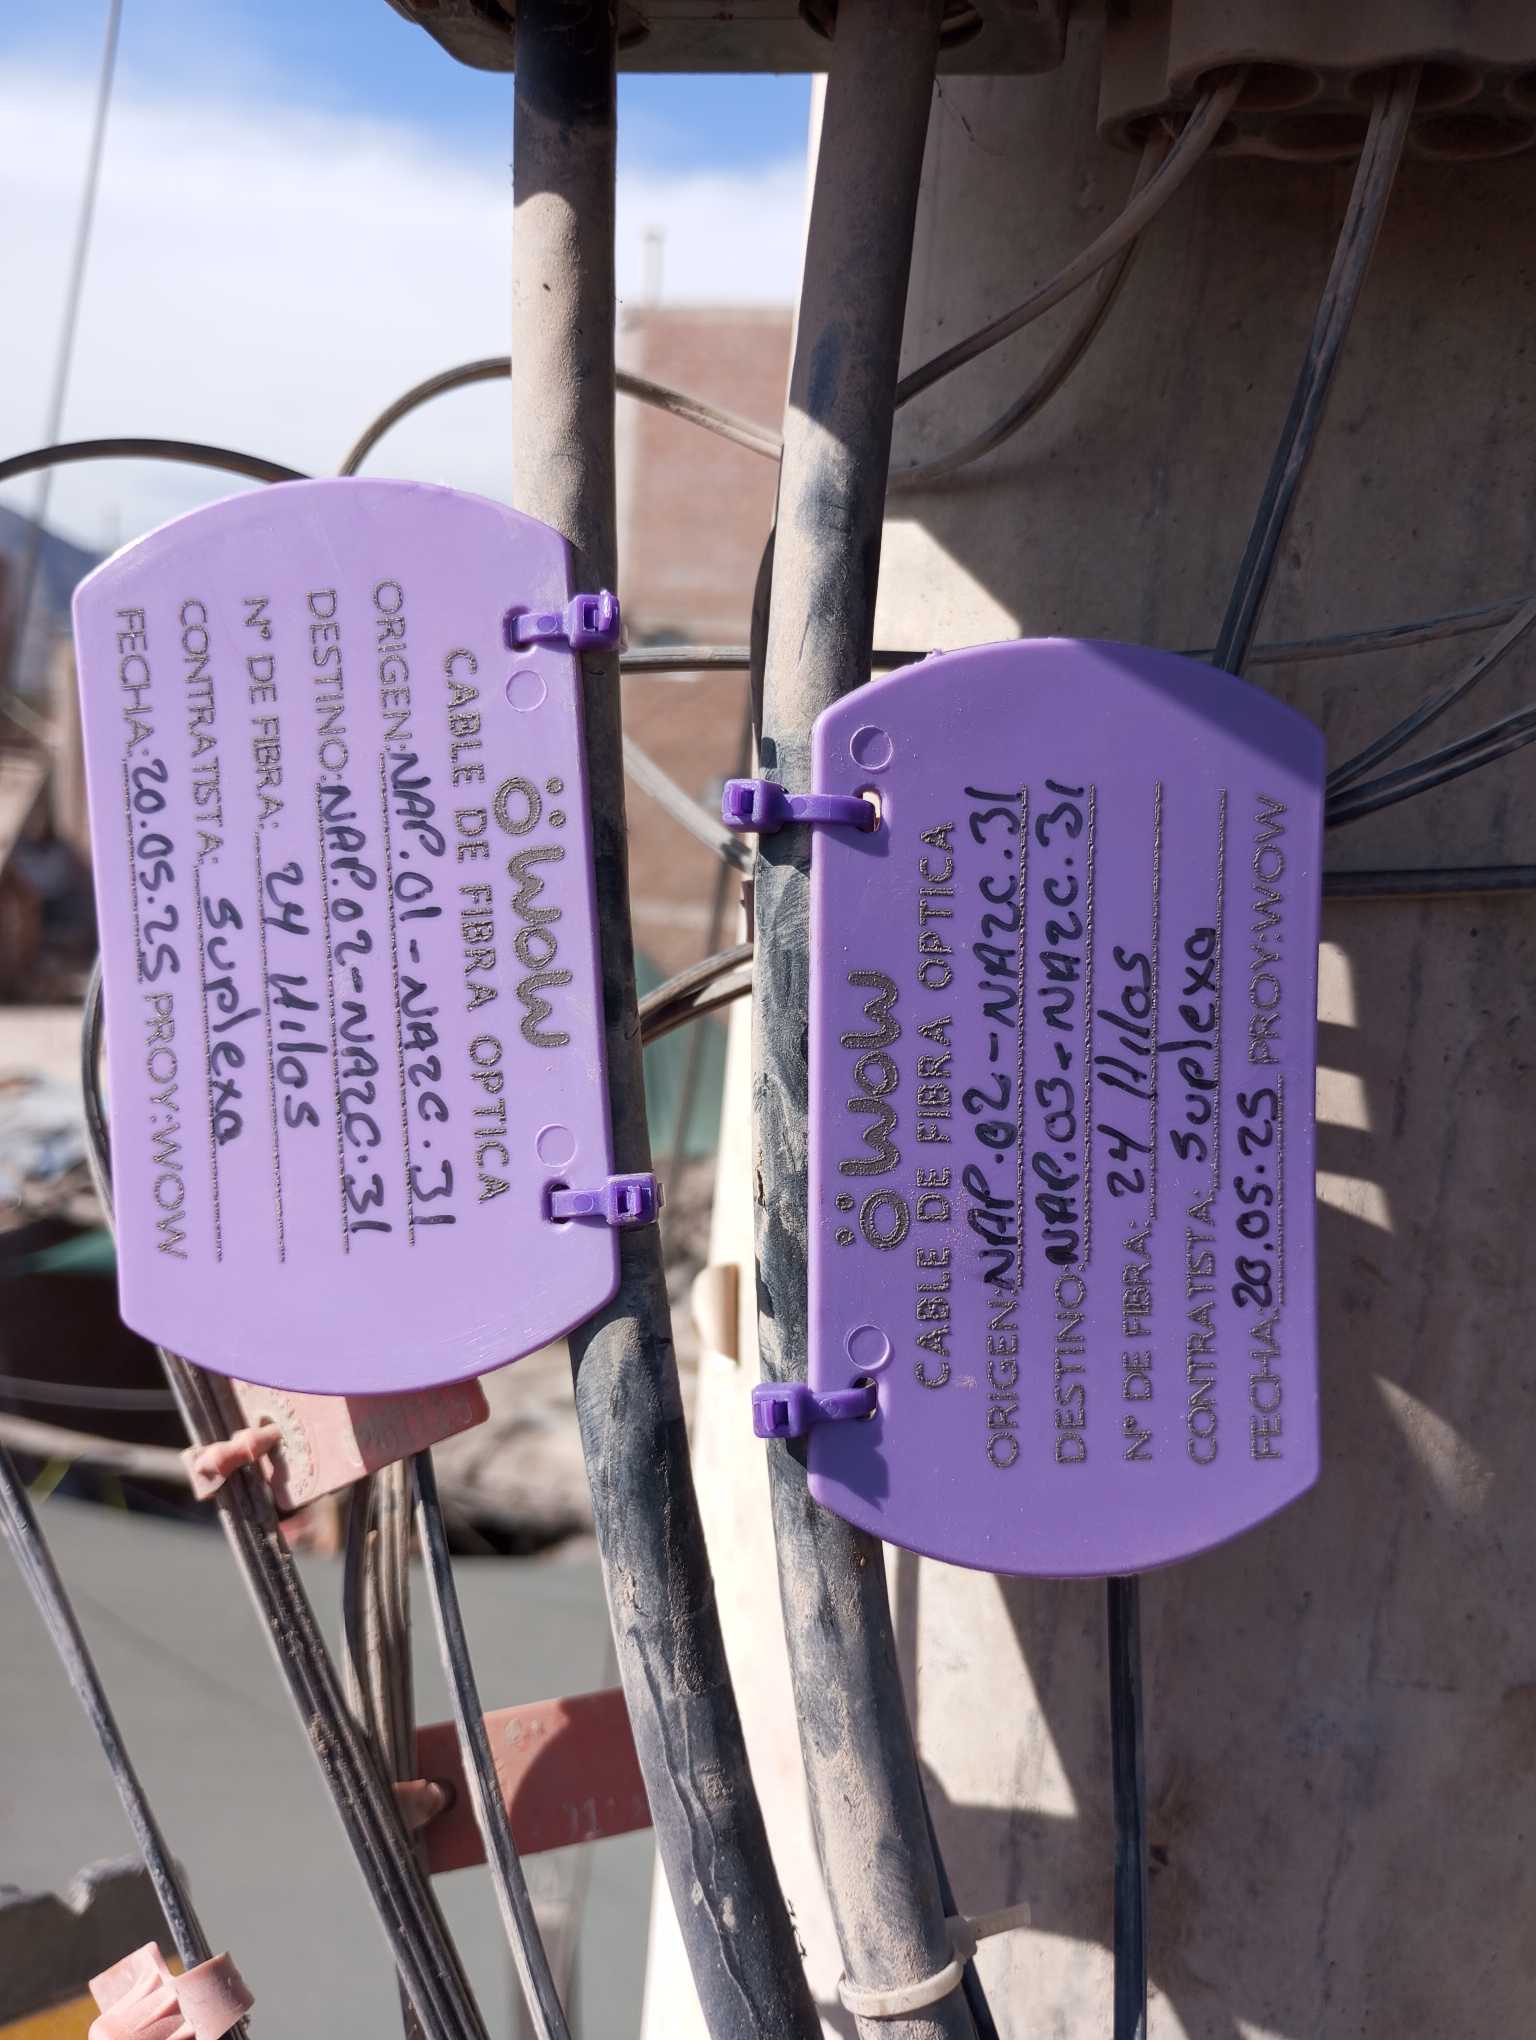 wow
CABLE DE FIBRA OPTICA
ORIGEN: NAP.01-NAZC.31
DESTINO: NAP.02-NAZC.31
N° DE FIBRA: 24 Hilos
CONTRATISTA: Suplexa
FECHA: 20.05.25 PROY: WOW
wow
CABLE DE FIBRA OPTICA
ORIGEN: NAP.02-NAZC.31
DESTINO: NAP.03-NAZC.31
N° DE FIBRA: 24 Hilos
CONTRATISTA: Suplexa
FECHA: 20.05.25 PROY: WOW